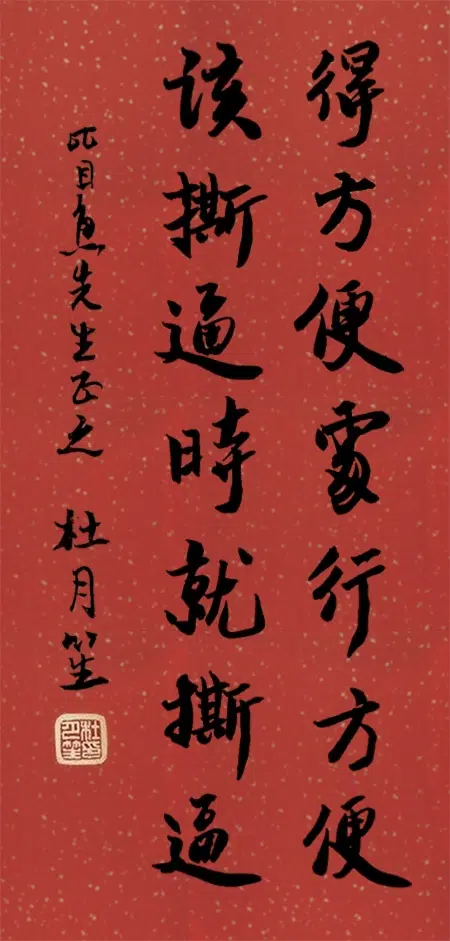 得方便處行方便
該撕逼時就撕逼
比目魚先生正之 杜月笙
杜月笙印